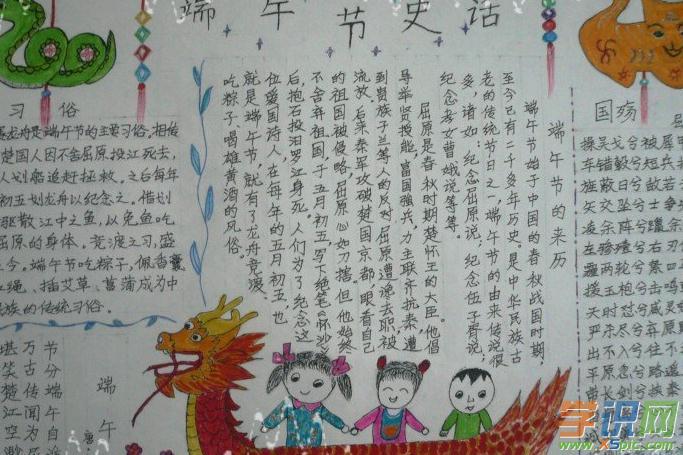 端午节史话
习俗
赛龙舟是端午节的主要习俗,相传
楚国人因不舍屈原投江死去,
人划船追赶拯救。之后每年
初五划龙舟以纪念之。借划
驱散江中之鱼,以免鱼吃
屈原的身体。竞渡之习,盛
今。端午节吃粽子,佩香囊
绳、插艾草、菖蒲成为中
民族的传统习俗。
端午节的来历
端午节始于中国的春秋战国时期,
至今已有二千多年历史,是中华民族古
老的传统节日之一,端午节的由来传说很
多,诸如:纪念屈原说;纪念伍子胥说;
纪念孝女曹娥说等等。
屈原是春秋时期楚怀王的大臣。他倡
导举贤授能,富国强兵,力主联齐抗秦,遭
到贵族子兰等人的反对,屈原遭谗去职,被
流放。后来秦军攻破楚国京都,眼看自己
的祖国被侵略,屈原心如刀割。但他始终
不舍弃祖国,于五月初五,写下绝笔《怀沙》
后,抱石投汨罗江身死。人们为了纪念这
位爱国诗人,在每年的五月初五,也
就是端午节,就有了龙舟竞渡、
吃粽子、喝雄黄酒的风俗。
国殇
屈
操吴戈兮被犀甲
车错毂兮短兵
旌蔽日兮敌若
矢交坠兮士争
凌余阵兮躐余
左骖殪兮右刃
霾两轮兮絷四
援玉枹兮击鸣
天时怼兮威灵
严杀尽兮弃原
出不入兮往不
平原忽兮路遥
带长剑兮挟秦
端午
唐
节分端午自
万古传闻为
堪笑楚江空
学识网
www.XSpic.com